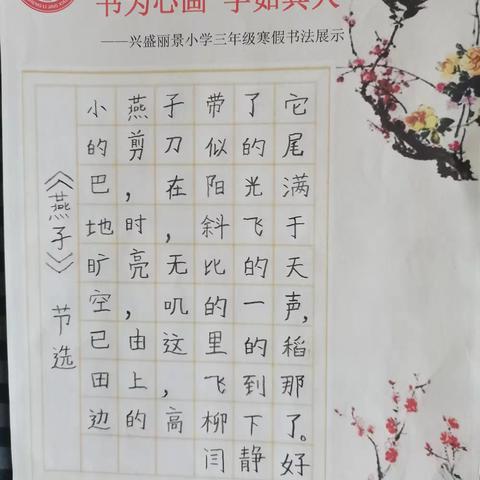 书为心画 字如其人
——兴盛丽景小学三年级寒假书法展示
《燕子》 节选
小燕子带了它
的剪刀似的尾
巴，在阳光满
地时，斜飞于
旷亮无比的天
空，叽的一声，
已由这里的稻
田上，飞到那
边的高柳下了。
闫静好